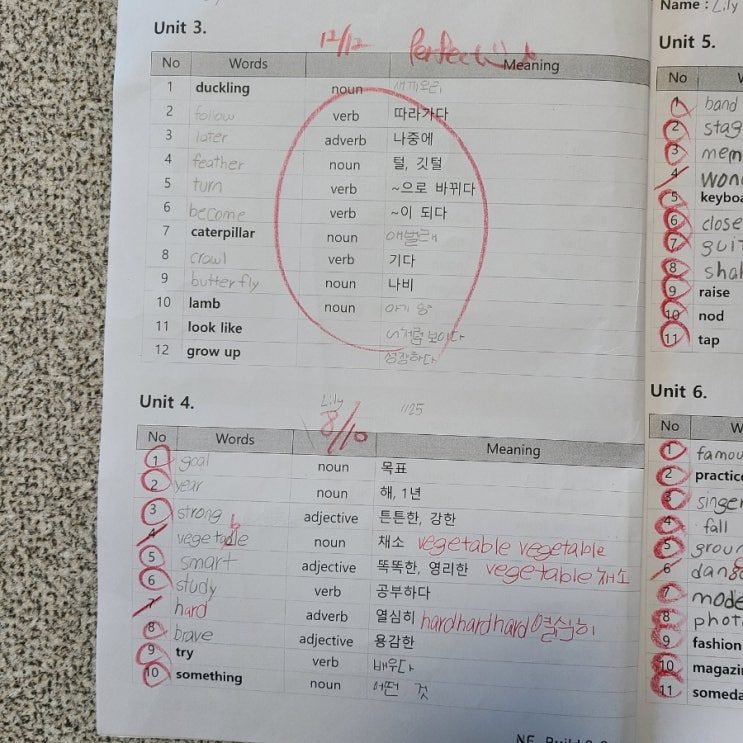 Name : Lily
Unit 3.
12/12 Perfect!
No Words Meaning
1 duckling noun 새끼오리
2 follow verb 따라가다
3 later adverb 나중에
4 feather noun 털, 깃털
5 turn verb ~으로 바뀌다
6 become verb ~이 되다
7 caterpillar noun 애벌레
8 crawl verb 기다
9 butterfly noun 나비
10 lamb noun 아기 양
11 look like ~처럼 보이다
12 grow up 성장하다
Unit 4.
Lily 1/25
8/10
No Words Meaning
1 goal noun 목표
2 year noun 해, 1년
3 strong adjective 튼튼한, 강한
4 vegetable noun 채소 vegetable vegetable
5 smart adjective 똑똑한, 영리한 vegetable 채소
6 study verb 공부하다
7 hard adverb 열심히 hard hard hard 열심히
8 brave adjective 용감한
9 try verb 배우다
10 something noun 어떤 것
Unit 5.
No W
1 band
2 stag
3 mem
4 won
5 keyboa
6 close
7 guit
8 shak
9 raise
10 nod
11 tap
Unit 6.
No W
1 famou
2 practice
3 singer
4 fall
5 groun
6 dange
7 mode
8 phot
9 fashion
10 magazi
11 someda